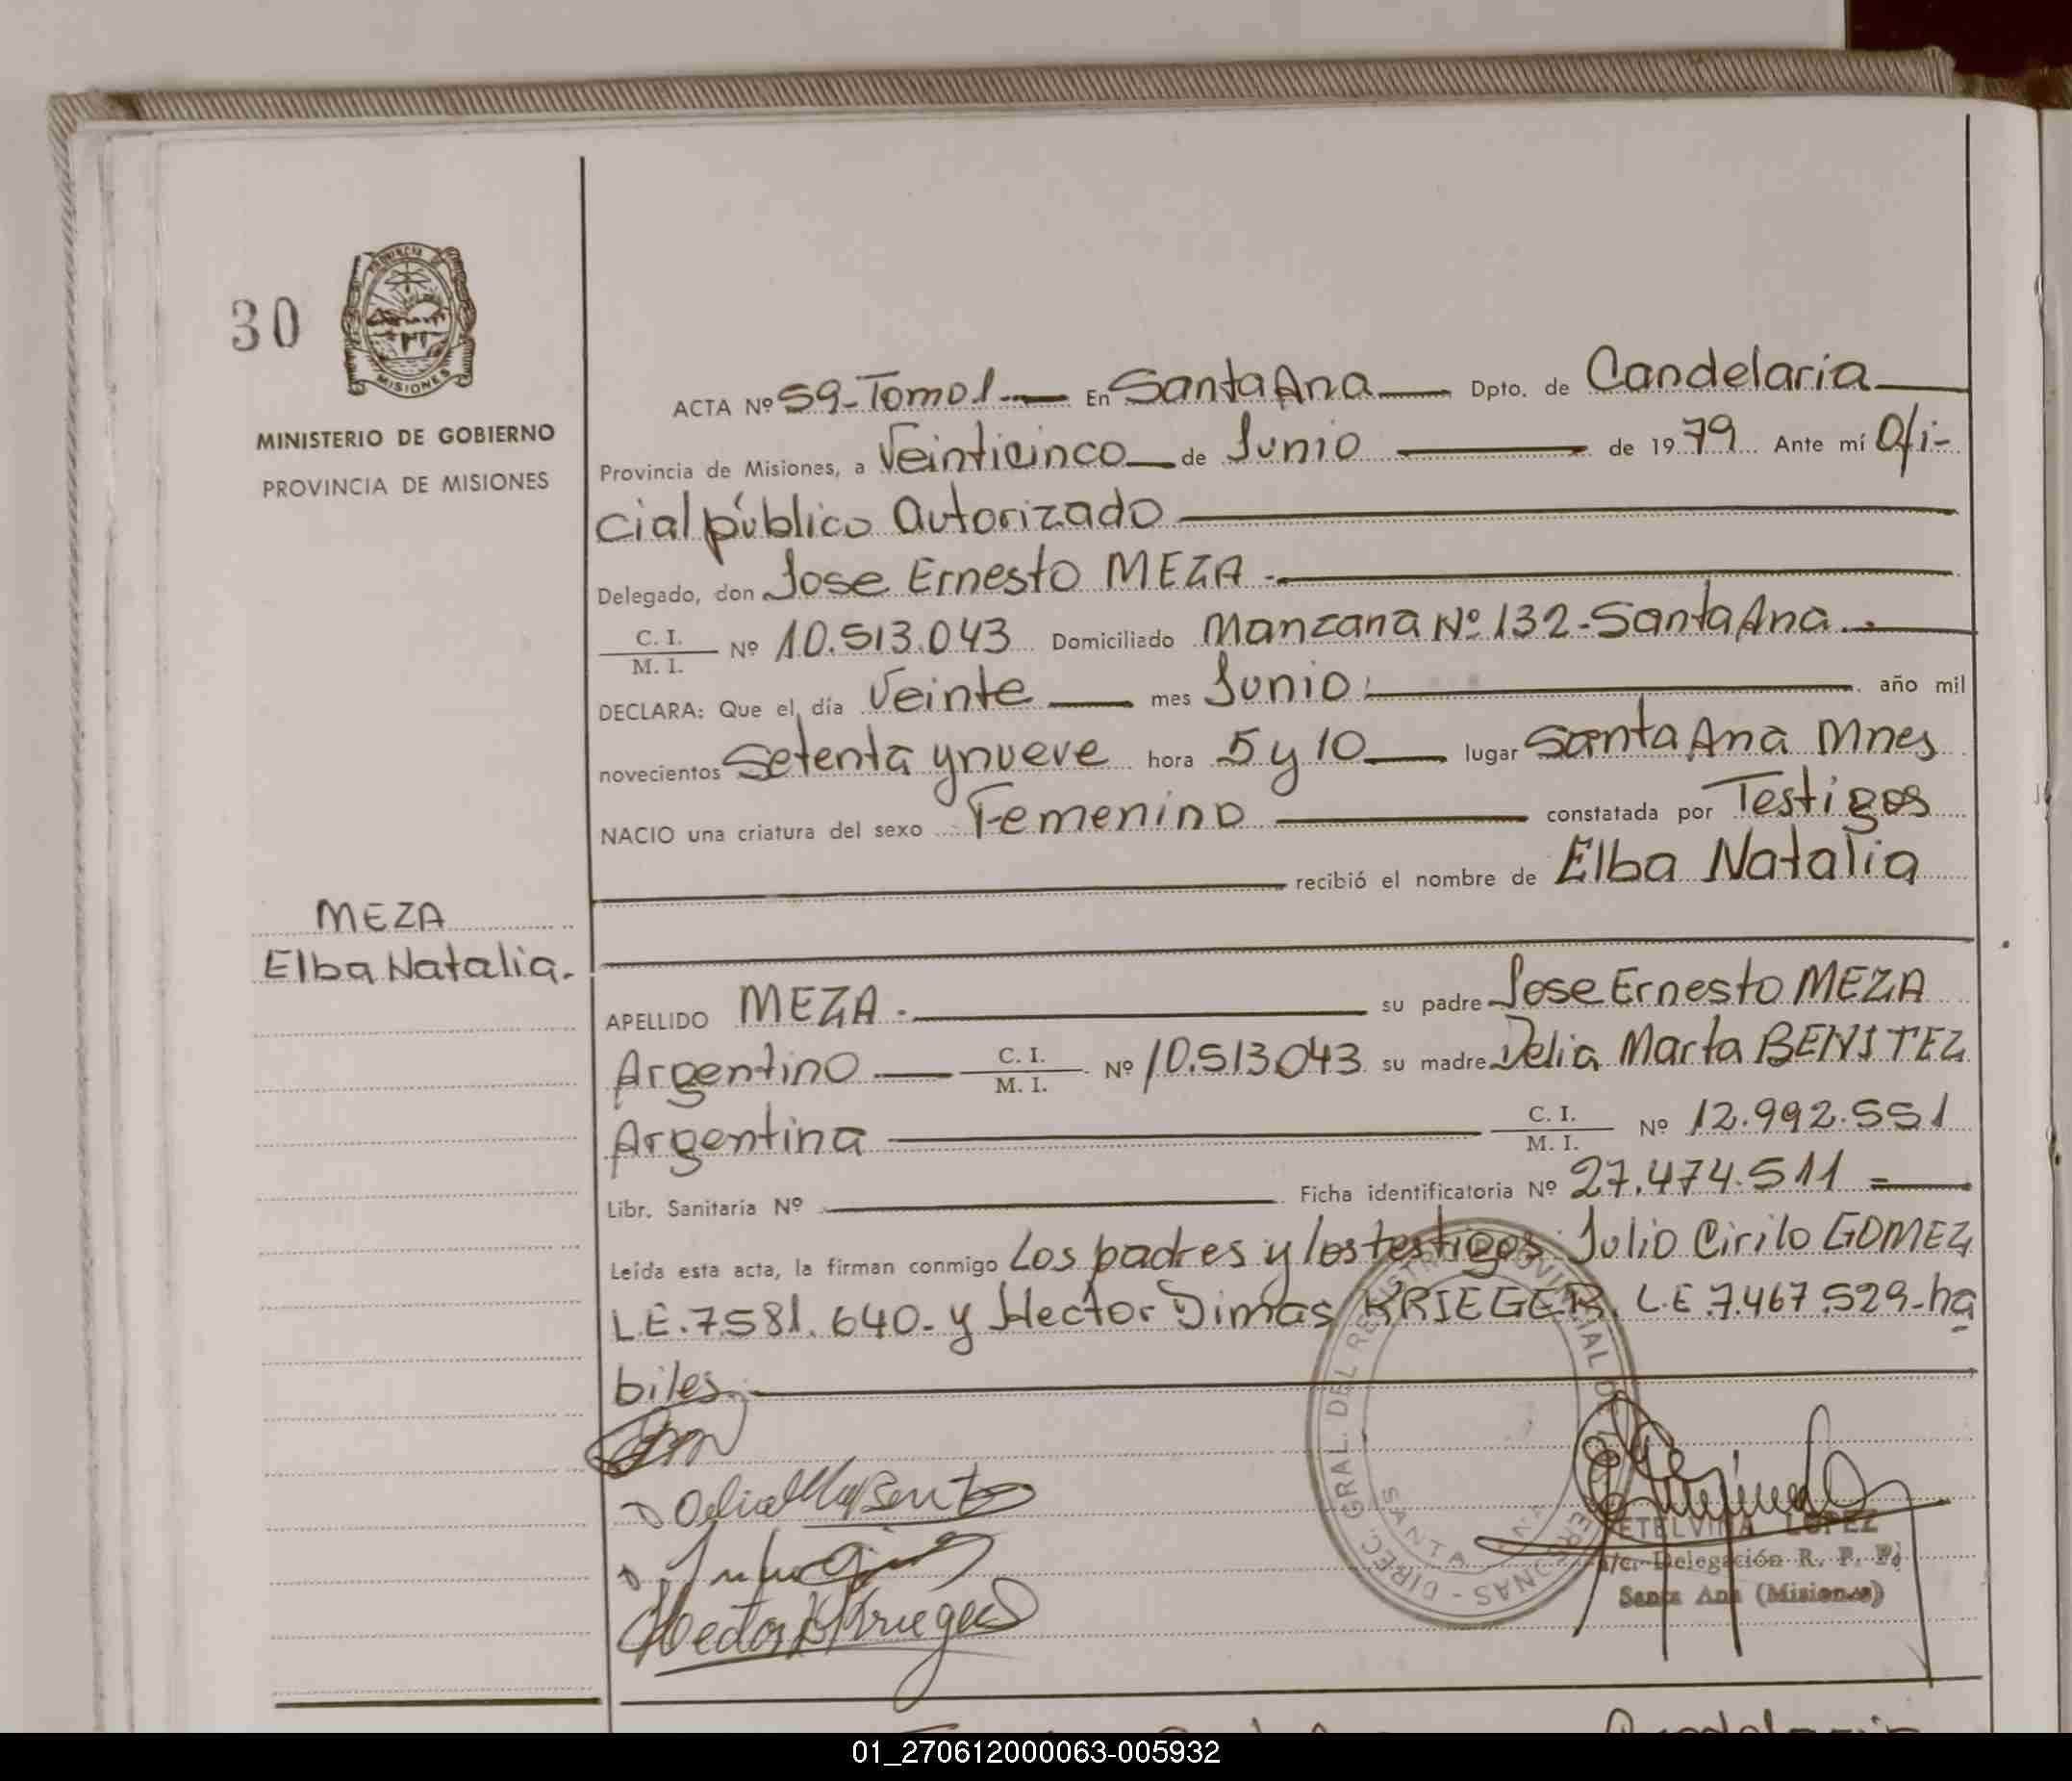 30
PROVINCIA DE
MISIONES
MINISTERIO DE GOBIERNO
PROVINCIA DE MISIONES
MEZA
Elba Natalia.
ACTA Nº 59-Tomo1.— En Santa Ana— Dpto. de Candelaria—
Provincia de Misiones, a Veinticinco— de Junio — de 1979 Ante mí Ofi-
cial público Autorizado —
Delegado, don Jose Ernesto MEZA.—
C. I. / M. I. Nº 10.513.043 Domiciliado Manzana Nº 132-Santa Ana.—
DECLARA: Que el día Veinte — mes Junio — año mil
novecientos Setenta y nueve hora 5 y 10— lugar Santa Ana Mnes
NACIO una criatura del sexo Femenino — constatada por Testigos
— recibió el nombre de Elba Natalia
APELLIDO MEZA.— su padre Jose Ernesto MEZA
Argentino — C. I. / M. I. Nº 10.513.043 su madre Delia Marta BENITEZ
Argentina — C. I. / M. I. Nº 12.992.551
Libr. Sanitaria Nº — Ficha identificatoria Nº 27.474.511 =—
Leída esta acta, la firman conmigo Los padres y los testigos: Julio Cirilo GOMEZ
L.E.7.581.640.- y Hector Dimas KRIEGER. L.E.7.467.529-ha
biles.—
Hector D Krieger
DIREC. GRAL. DEL REGISTRO PROVINCIAL DE LAS PERSONAS -
SANTA ANA
ETELVINA LOPEZ
a/c. Delegación R. P. P.
Santa Ana (Misiones)
01_270612000063-005932